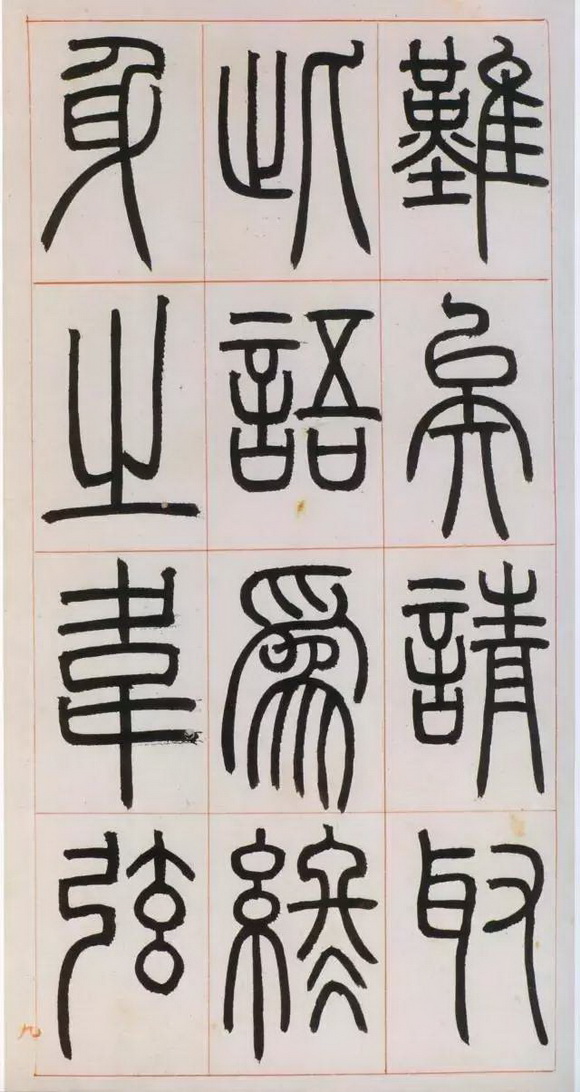 難矣請取
此語爲終
身之韋弦